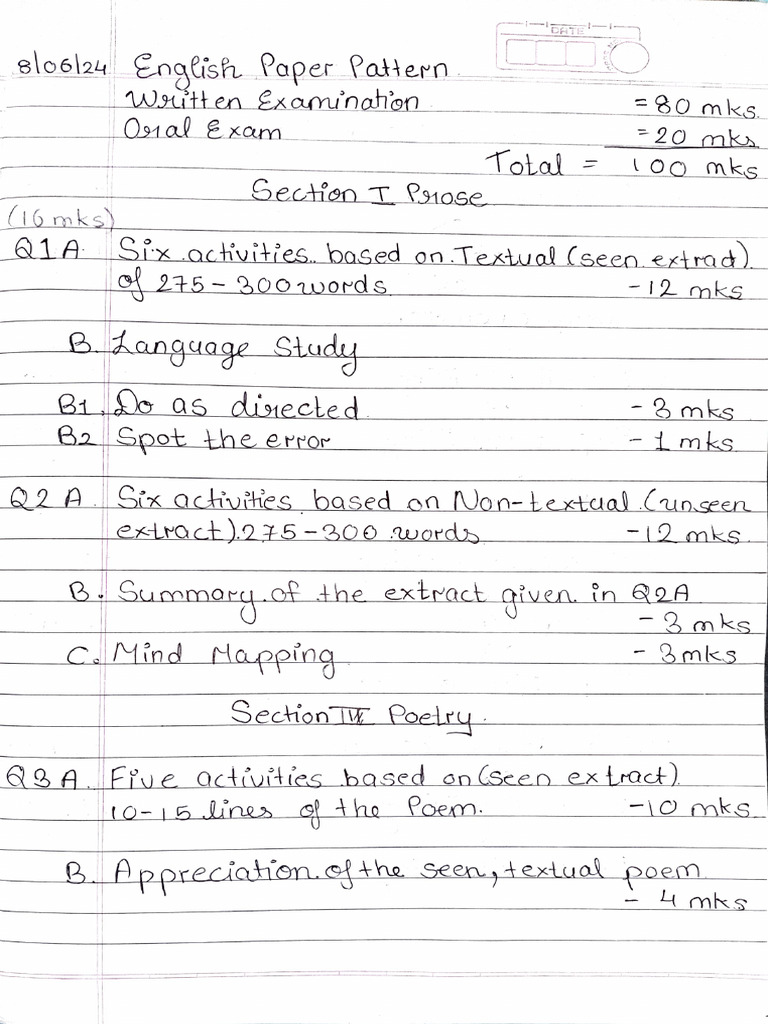 DATE
8/06/24 English Paper Pattern
Written Examination = 80 mks
Oral Exam = 20 mks
Total = 100 mks
Section I Prose
(16 mks)
Q1 A. Six activities based on Textual (seen extract)
of 275 - 300 words. - 12 mks
B. Language Study
B1. Do as directed - 3 mks
B2 Spot the error - 1 mks
Q2 A. Six activities based on Non-textual (unseen
extract). 275 - 300 words - 12 mks
B. Summary of the extract given in Q2A
- 3 mks
C. Mind Mapping - 3 mks
Section Poetry.
Q3 A. Five activities based on (seen extract)
10 - 15 lines of the Poem. - 10 mks
B. Appreciation of the seen, textual poem
- 4 mks